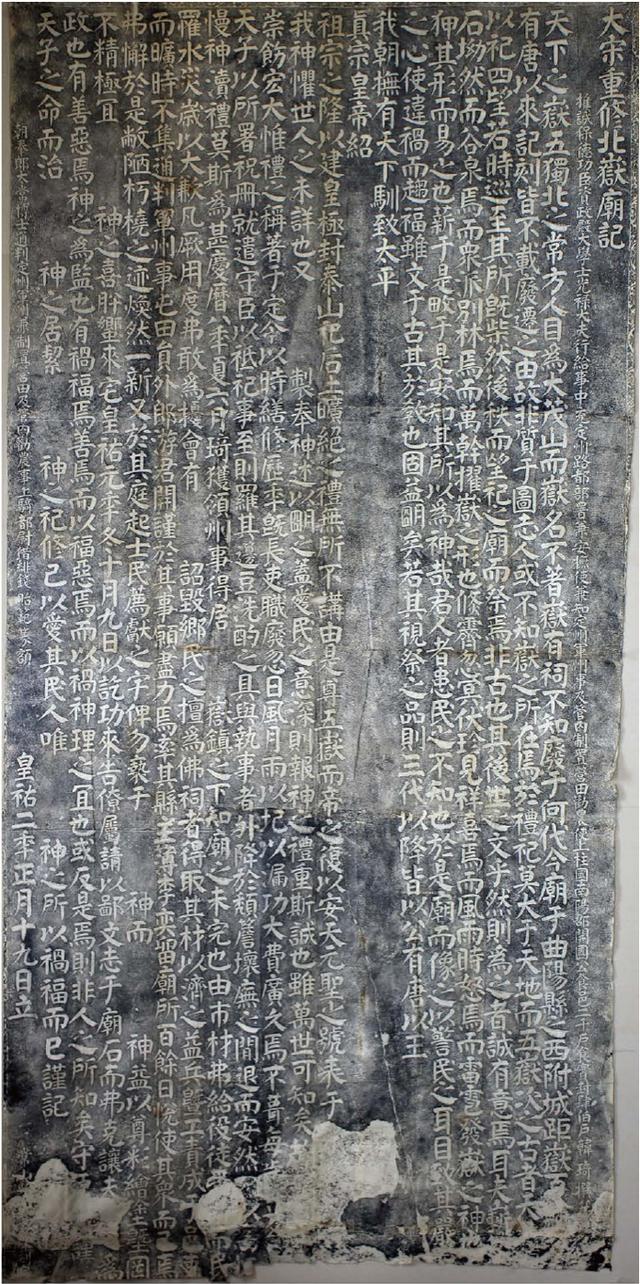 大宋重修北嶽廟記
推誠保德功臣資政殿大學士光祿大夫行給事中充定州路都部署兼安撫使兼知定州軍州事及管內制置營田勸農使上柱國南陽郡開國公食邑二千戶食實封
天下之嶽五獨北之常方人目為大茂山而嶽名不著嶽有祠不知廢于何代今廟于曲陽縣之西附城距嶽
有唐以來記刻皆不載廢遷之由故非質于圖志人或不知嶽之所在焉於禮祀莫大于天地而五嶽次之古者天
以祀四望若時巡至其所既柴然後秩而望祀之廟而祭焉非古也其後世之文乎然則為之者誠有意焉耳夫
石㘭然而谷泉焉而衆派別林焉而萬幹擢嶽之形也倏霽忽冥伏珍見祥喜焉而風雨時怒焉而雷雹發嶽之神
神其形而易之也薪于是畋于是安知其所以為神哉君人者患民之不知也於是廟而像之以警民之耳目
之心使違禍而趨福雖文于古其於教也固益明矣若其視祭之品則三代以降皆以公有唐以王
我朝撫有天下馴致太平
真宗皇帝紹
祖宗之隆以建皇極封泰山祀后土曠絕之禮無所不講由是尊五嶽而帝之復以安天元聖之號來于
我神懼世人之未詳也又 製奉神述以明之蓋愛民之意深則報神之禮重斯誠也雖萬世可知矣
崇飭宏大惟禮之稱著于定令以時繕修歷年既長吏職廢忽日風月雨以圮以漏功大費廣久焉不
天子以所署祝冊就遣守臣以祗祀事至則羅其籩豆洗酌之具與執事者外降於頹簷壞廡之間退而安然
慢神瀆禮莫斯為甚慶曆八年夏六月琦獲領州事得居 嶽鎮之下知廟之未完也由市材弗給役徒
罹水災歲以大歉凡厥用度弗敢為擾會有 詔毀鄉民之擅為佛祠者得取其材以濟之益兵暨工責成
而曠時不集通判軍州事屯田員外郎游君開謹於其事願盡力焉率其縣主簿李奕留廟所百餘日悅使其衆而
弗懈於是敝陋朽橈之迹煥然一新又於其庭起士民薦獻之宇俾勿褻于 神而 神益以尊彩繪塗塈罔
不精極宜 神之喜肸蠁來宅皇祐元年冬十月九日以訖功來告僚屬請以鄙文志于廟石而弗克讓夫
政也有善惡焉神之為監也有禍福焉善焉而以福惡焉而以禍神理之宜也或反是焉則非人之所知矣守
天子之命而治 神之居潔 神之祀修己以愛其民人唯 神之所以禍福而已謹記
皇祐二年正月十九日立
朝奉郎太常博士通判定州軍州兼制置營田及管內勸農事上騎都尉借緋錢貽範篆額